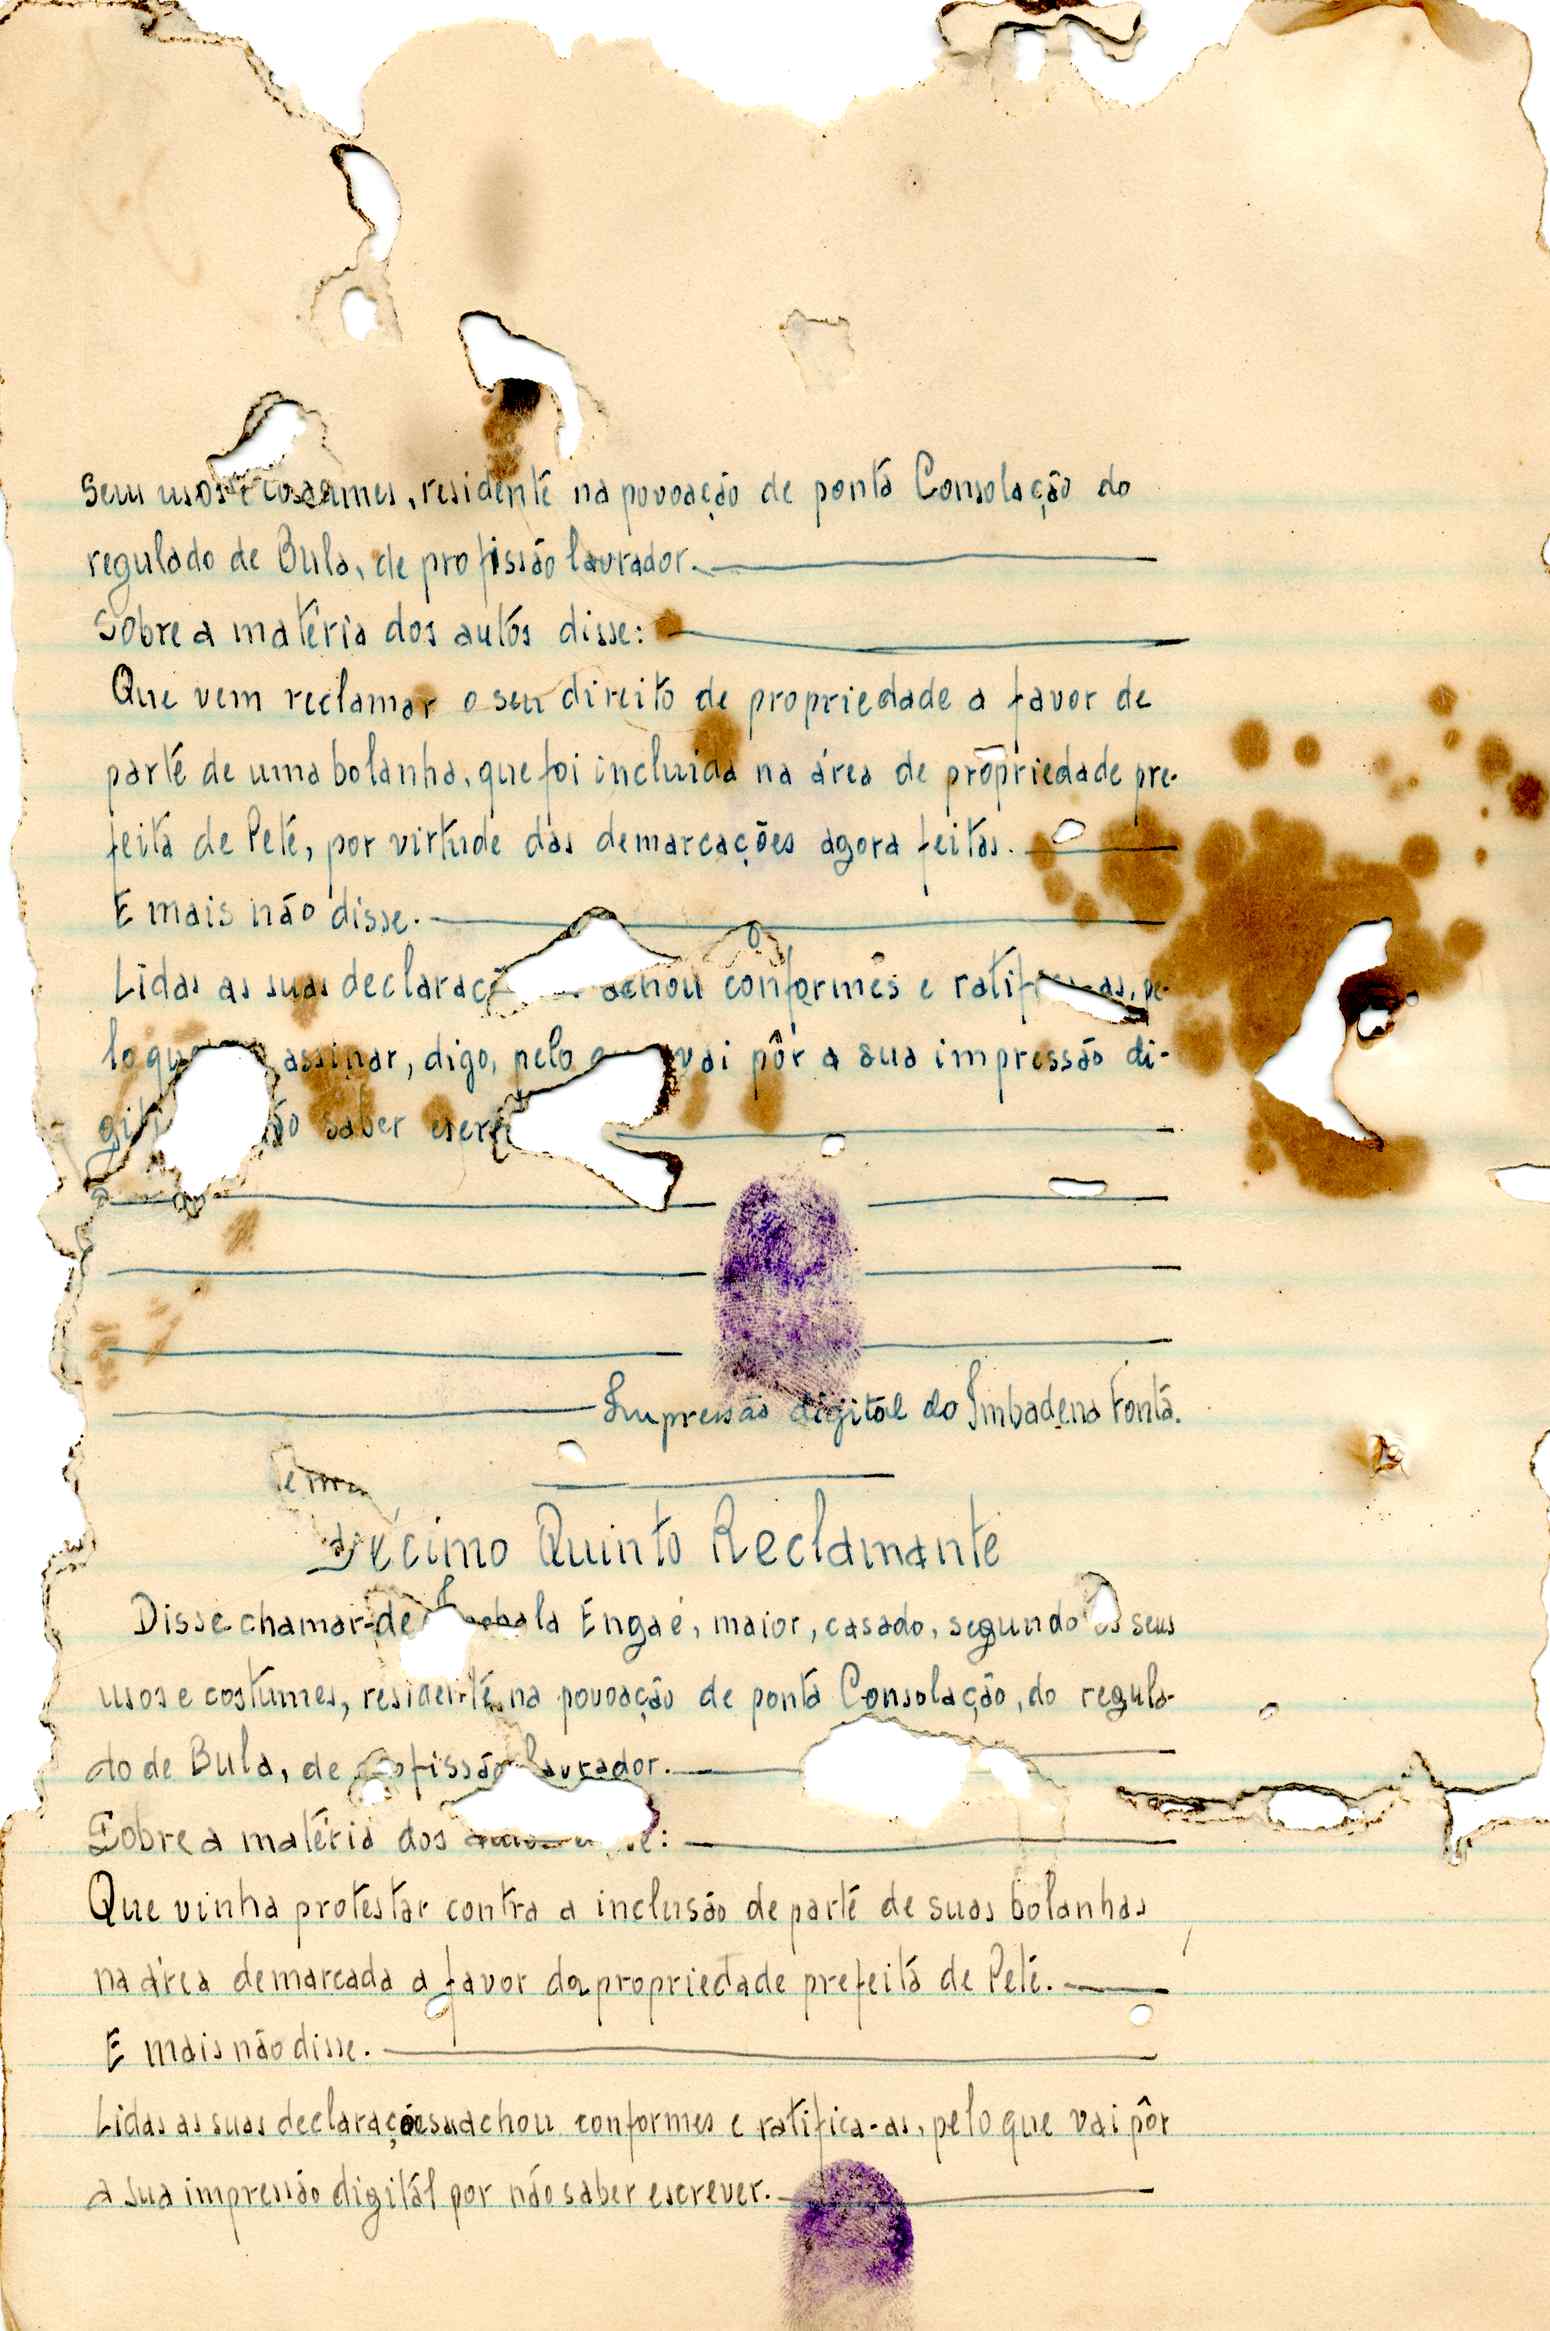 seus usos e costumes, residente na povoação de ponta Consolação do
regulado de Bula, de profissão lavrador.
Sobre a matéria dos autos disse:
Que vem reclamar o seu direito de propriedade a favor de
parte de uma bolanha, que foi incluida na área de propriedade pre-
feita de Peté, por virtude das demarcações agora feitas.
E mais não disse.
Lidas as suas achou conformes e pe-
lo assinar, digo, pelo vai pôr a sua impressão di-
saber
Impressão digital do Imbadena Fontá.
Décimo Quinto Reclamante
Disse chamar-de Engaé, maior, casado, segundo os seus
usos e costumes, residente na povoação de ponta Consolação, do regula-
do de Bula, de profissão lavrador.
Sobre a matéria dos
Que vinha protestar contra a inclusão de parte de suas bolanhas
na área demarcada a favor da propriedade prefeita de Peté.
E mais não disse.
Lidas as suas declarações achou conformes e ratifica-as, pelo que vai pôr
a sua impressão digital por não saber escrever.